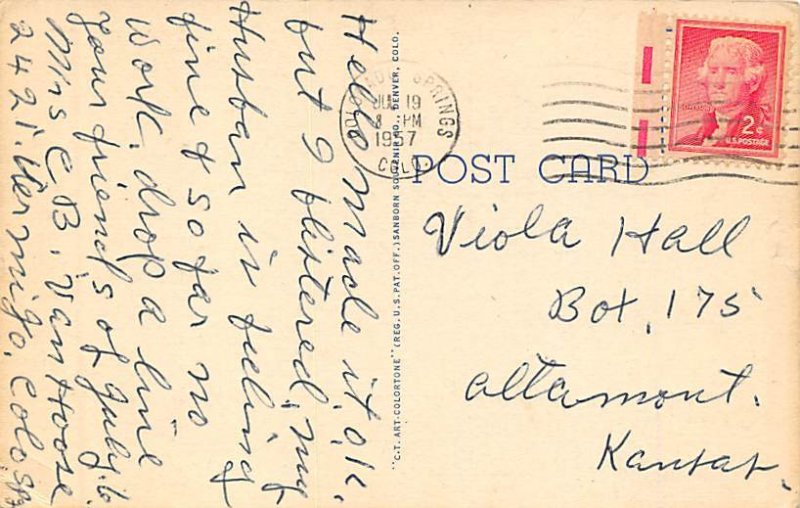 Hello made it ok.
but I blistered, my
Husban is feeling
fine & so far no
work. drop a line
your friends of July. 6
Mrs C B. Van Hoose
2421. Vermijo. Colo Spg
COLORADO SPRINGS
19
PM
1957
COLO.
2¢
U.S. POSTAGE
POST CARD
Viola Hall
Box, 175
Altamont.
Kansas.
"C.T. ART-COLORTONE" (REG. U.S. PAT. OFF.) SANBORN SOUVENIR CO., DENVER, COLO.